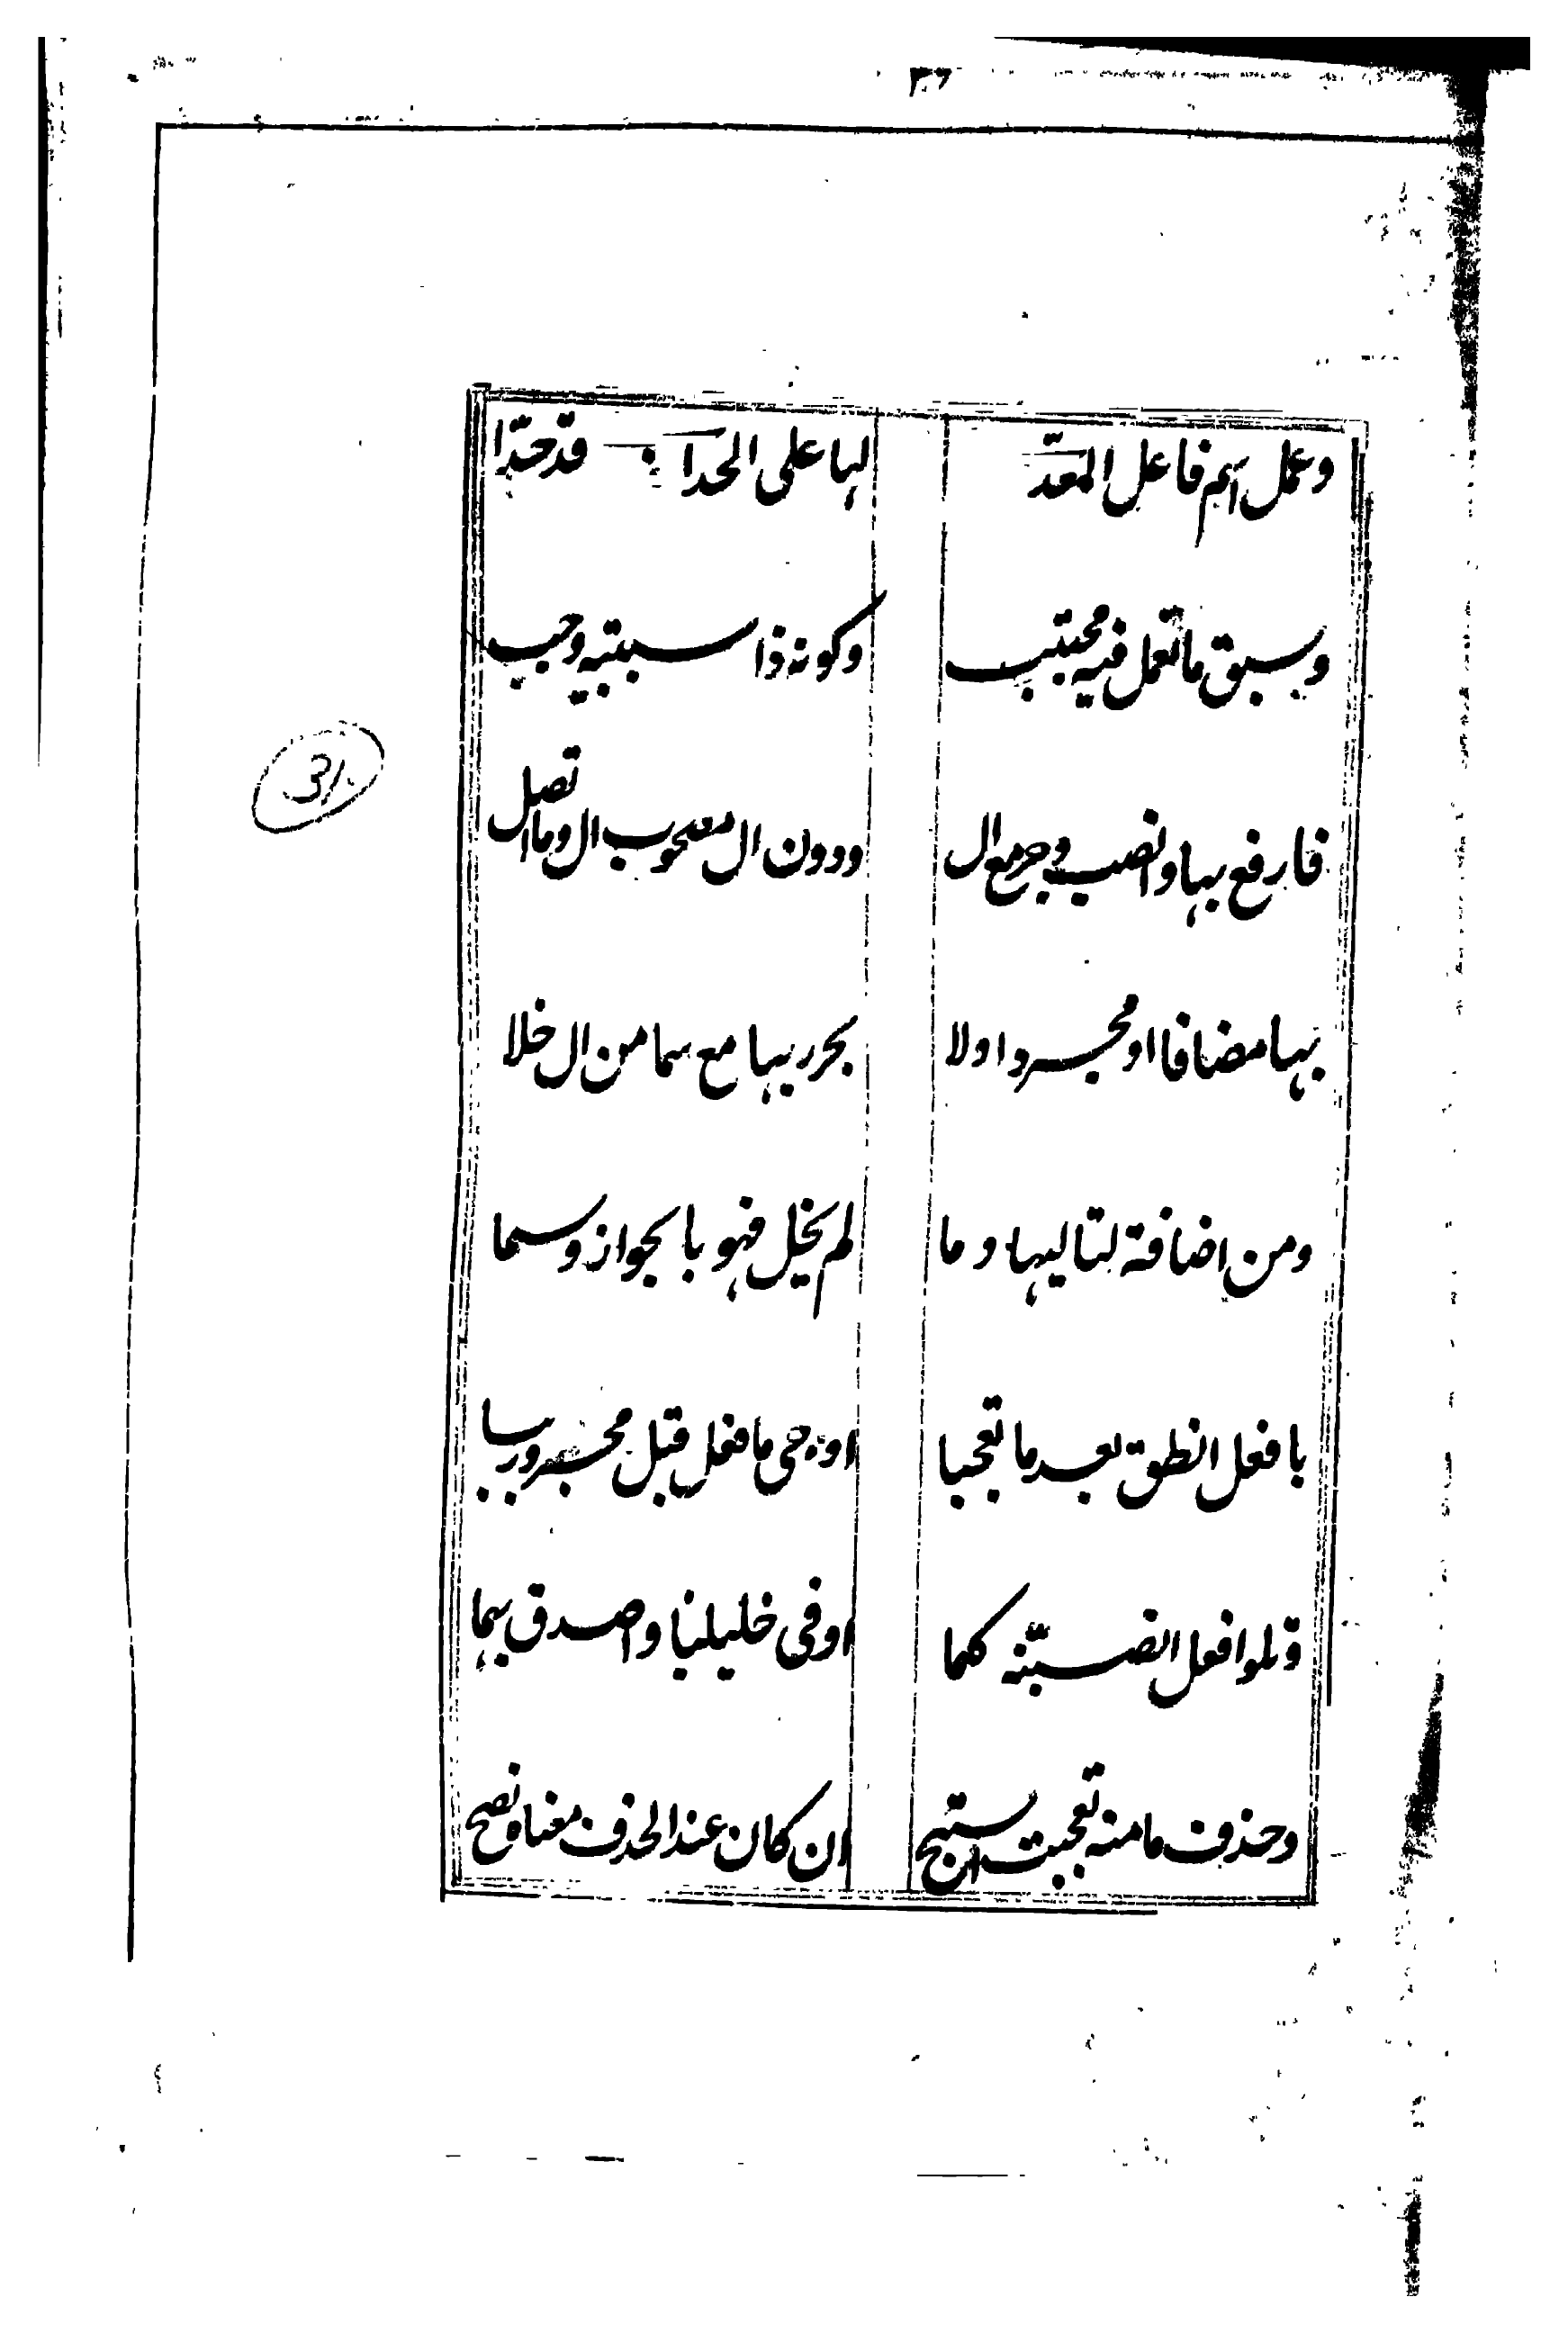 ٣٦
وعمل اسم فاعل المعدّ لها على الحد ا قد حدّا
وسبق ما تعمل فيه مجتنب وكونه ذا سببيّة وجب
فارفع بها وانصب وجر مع ال ودون ال مصحوب ال وما اتصل
بها مضافا او مجردا ولا تجرر بها مع سما من ال خلا
ومن اضافة لتاليها وما لم يخل فهو بالجواز وسما
بافعل انطق بعد ما تعجبا او جئ بافعل قبل مجرور ببا
وتلو افعل انصبنّه كما اوفى خليلينا واصدق بهما
وحذف ما منه تعجبت استبح ان كان عند الحذف معناه يضح
31